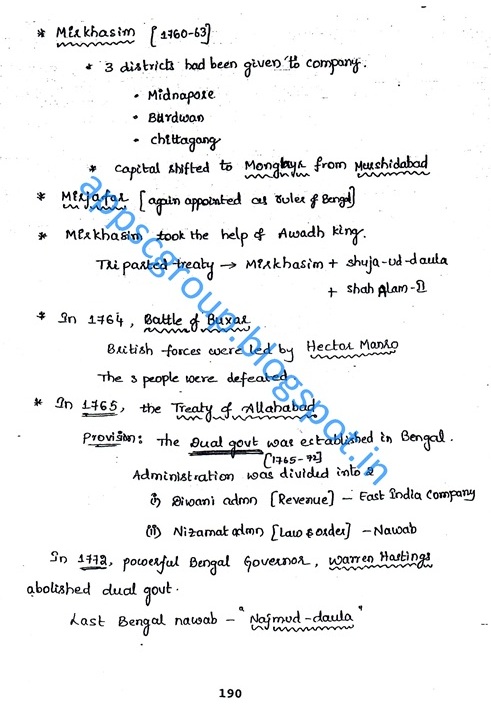 * Mirkhasim [1760-63]
* 3 districts had been given to company.
• Midnapore
• Burdwan
• chittagang
* capital shifted to Monghyr from Murshidabad
* Mirjafar [again appointed as ruler of Bengal]
* Mirkhasim took the help of Awadh king.
Triparted treaty → Mirkhasim + shuja-ud-daula
+ shah Alam-II
* In 1764, Battle of Buxar
British forces were led by Hector Manro
The 3 people were defeated
* In 1765, the Treaty of Allahabad
Provision: The Dual govt was established in Bengal.
[1765-72]
Administration was divided into 2
i) Diwani admn [Revenue] - East India Company
(ii) Nizamat admn [Law & order] - Nawab
In 1772, powerful Bengal Governor, Warren Hastings
abolished dual govt.
Last Bengal nawab - "Najmud-daula"
190
appscgroup.blogspot.in